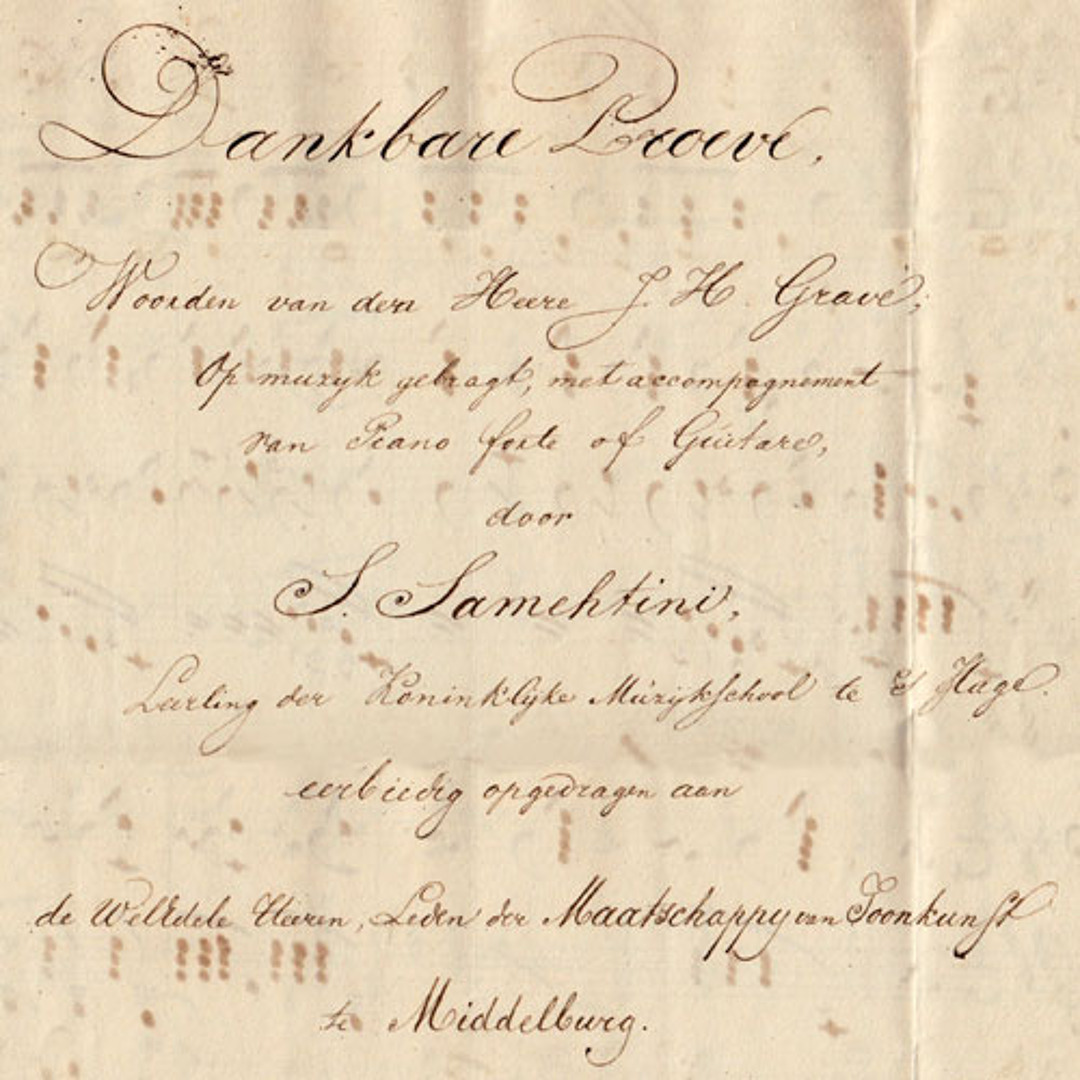 Dankbare Proeve,
Woorden van den Heere J. H. Gravé;
Op muzyk gebragt, met accompagnement
van Piano forte of Guitare,
door
S. Samehtini,
Leerling der Koninklyke Muzykschool te S' Hage.
eerbiedig opgedragen aan
de WelEdele Heeren, Leden der Maatschappy van Toonkunst
te Middelburg.